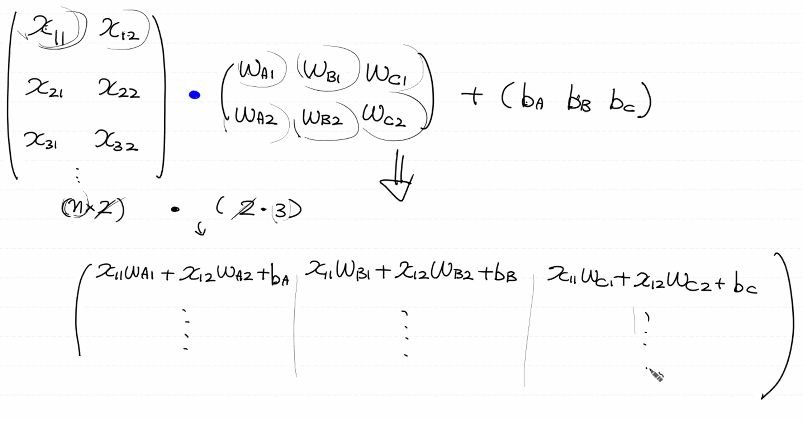 x₁₁ x₁₂
x₂₁ x₂₂ • (w_A1 w_B1 w_C1
w_A2 w_B2 w_C2) + (b_A b_B b_C)
x₃₁ x₃₂
⋮
(n×2) • (2·3)
x₁₁w_A1 + x₁₂w_A2 + b_A x₁₁w_B1 + x₁₂w_B2 + b_B x₁₁w_C1 + x₁₂w_C2 + b_C
⋮ ⋮ ⋮